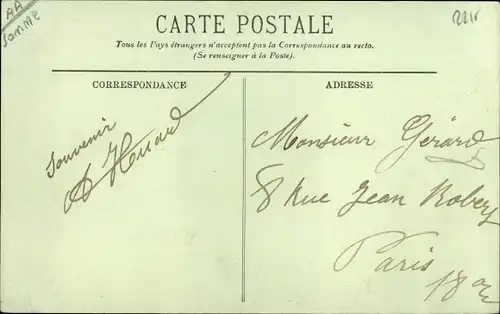 AA
SOMME
2215
CARTE POSTALE
Tous les Pays étrangers n'acceptent pas la Correspondance au recto.
(Se renseigner à la Poste).
CORRESPONDANCE
ADRESSE
Souvenir
A Huard
Monsieur Gérard
8 Rue Jean Robert
Paris
18e